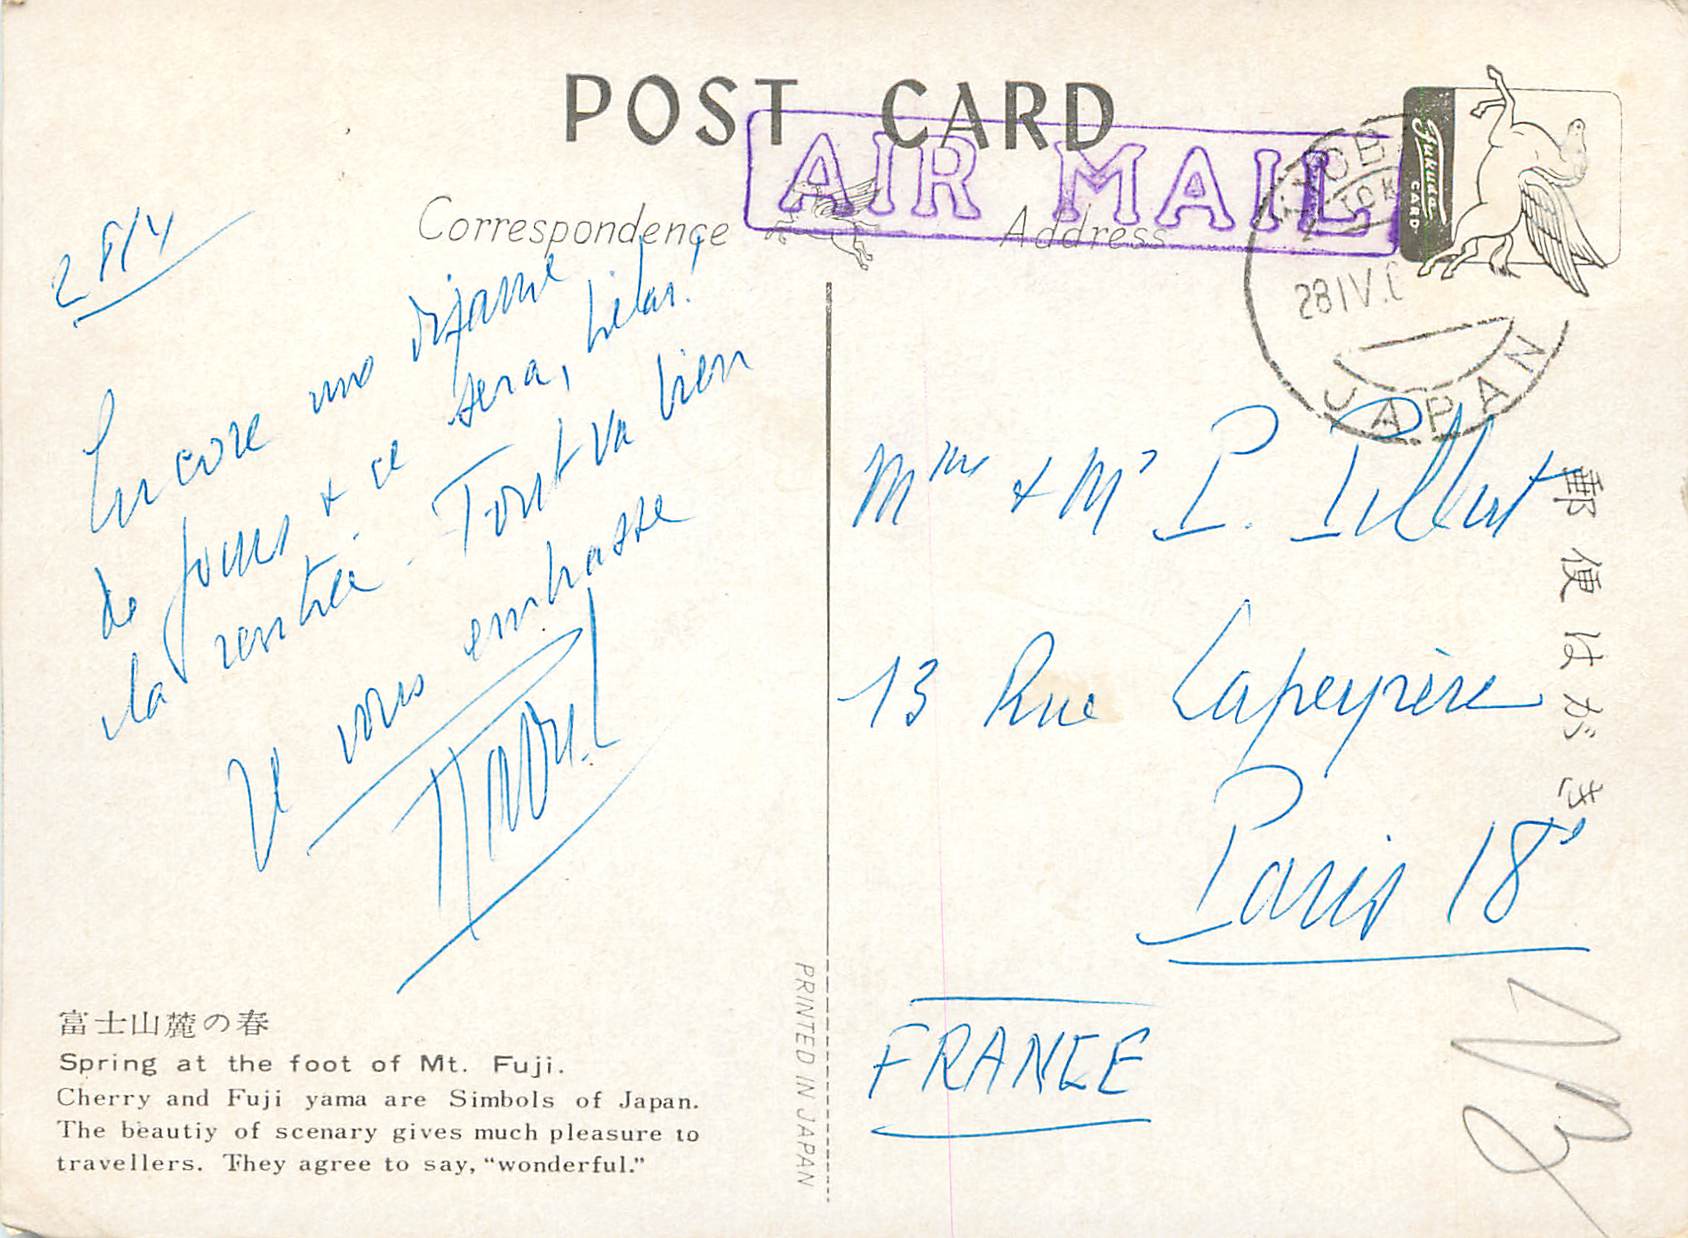 POST CARD
AIR MAIL
Correspondence
Address
Fukuda
CARD
28 IV. 6
JAPAN
28/4
Encore une dizaine
de jours & ce sera, hélas!
la rentrée - Tout va bien
Je vous embrasse
Mme & Mr P. Pillut
13 Rue Lapeyrère
Paris 18e
FRANCE
郵便はがき
富士山麓の春
Spring at the foot of Mt. Fuji.
Cherry and Fuji yama are Simbols of Japan.
The beautiy of scenary gives much pleasure to
travellers. They agree to say, "wonderful."
PRINTED IN JAPAN